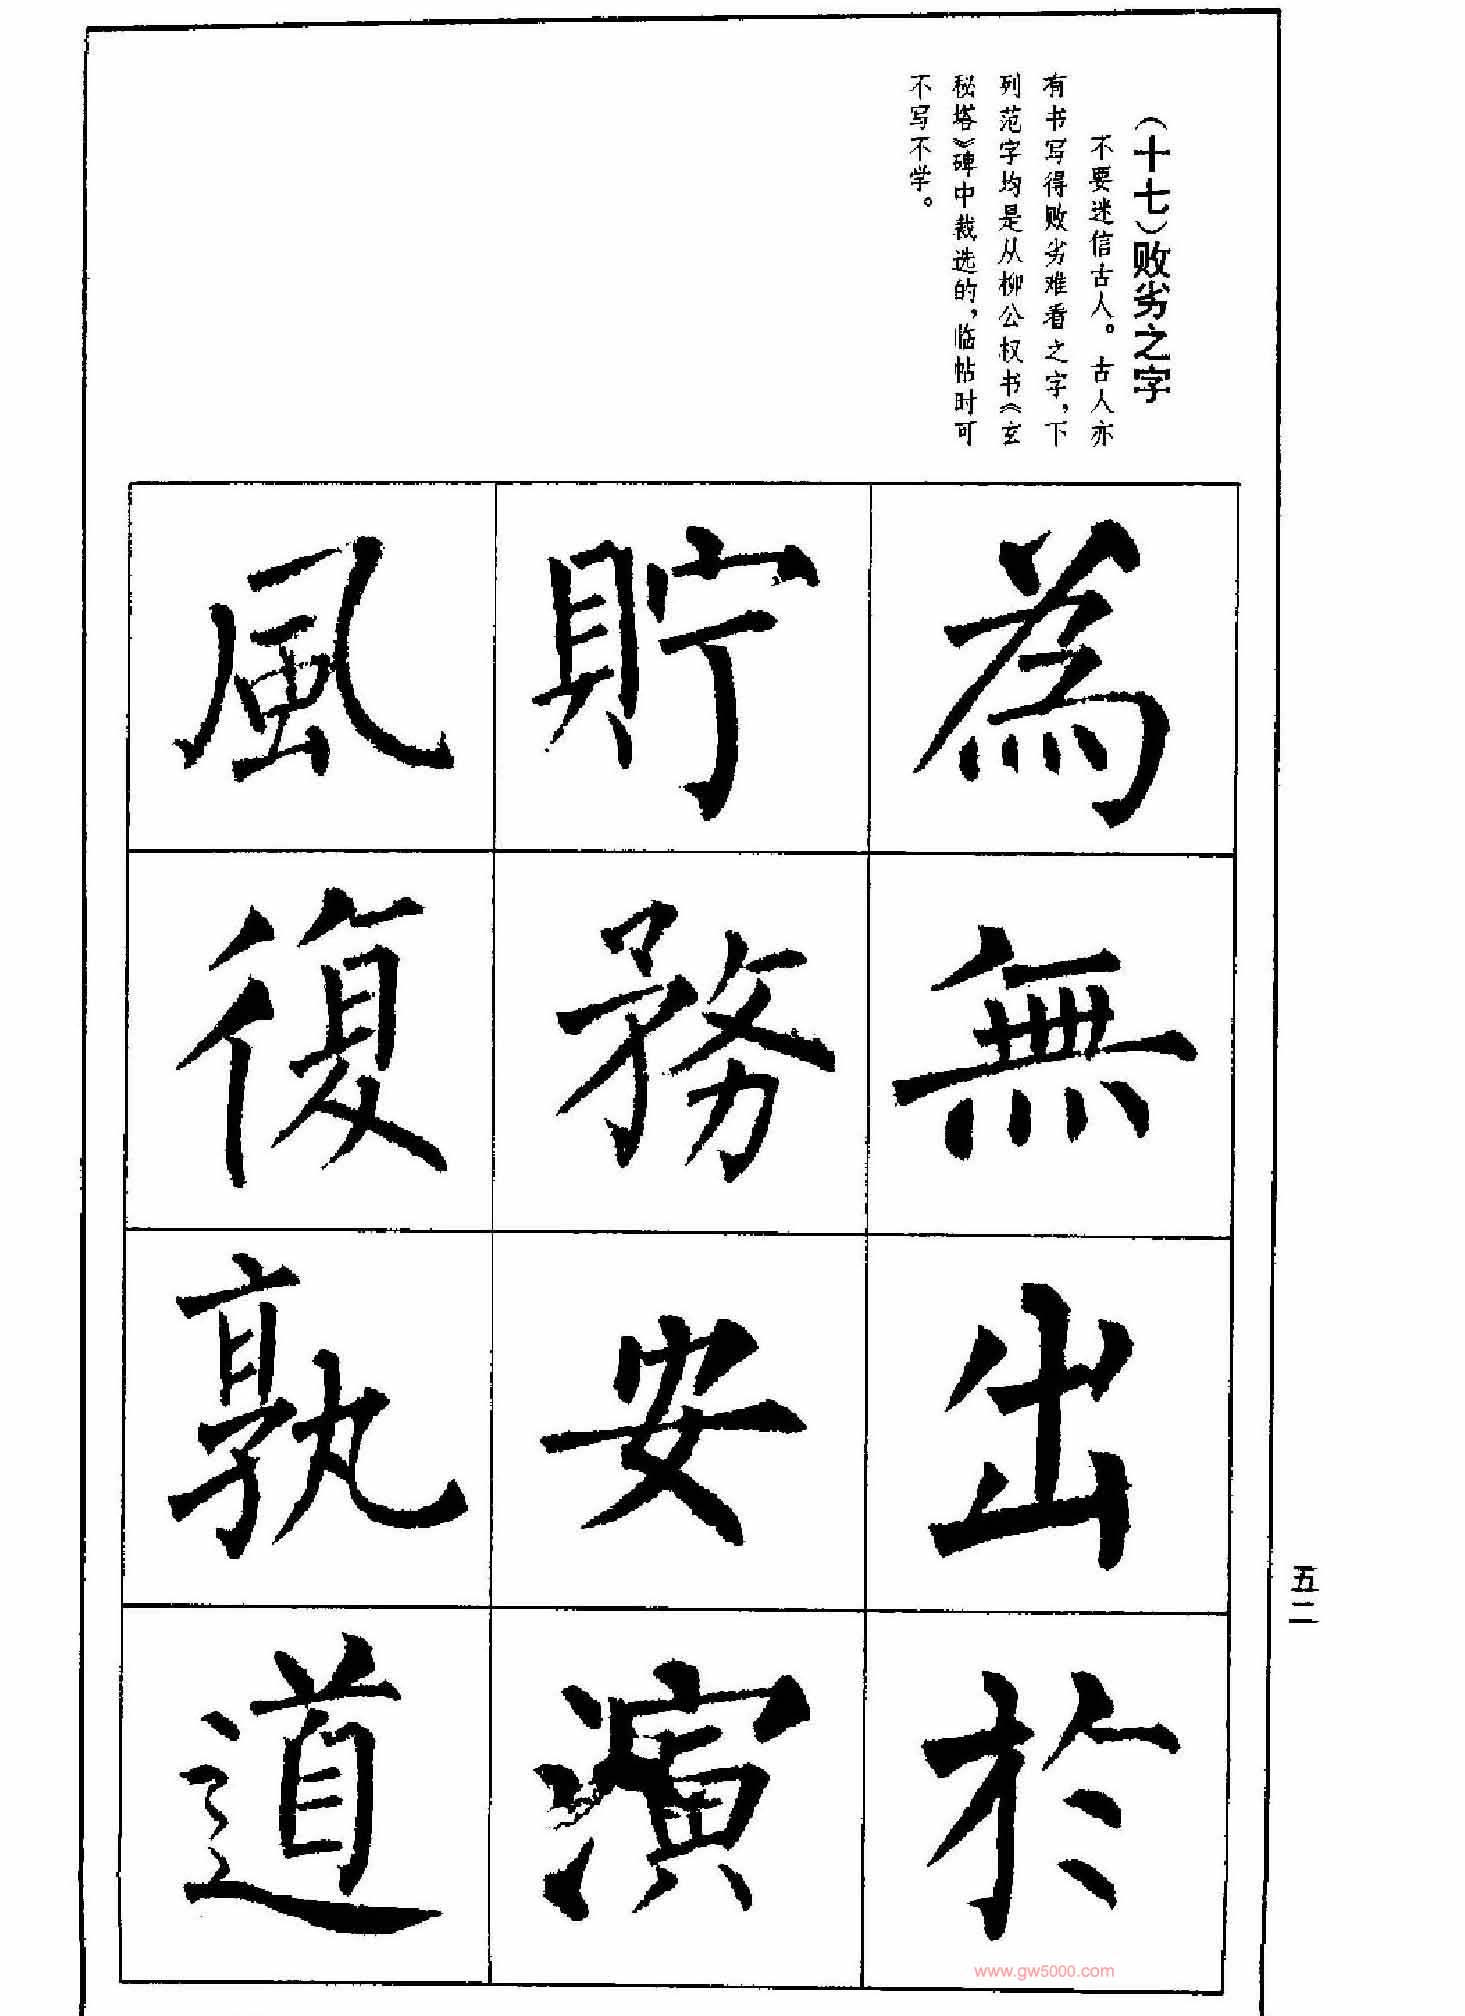 （十七）败劣之字
不要迷信古人。古人亦
有书写得败劣难看之字，下
列范字均是从柳公权书《玄
秘塔》碑中裁选的，临帖时可
不写不学。
為無出於
貯務安演
風復孰道
五二
www.gw5000.com